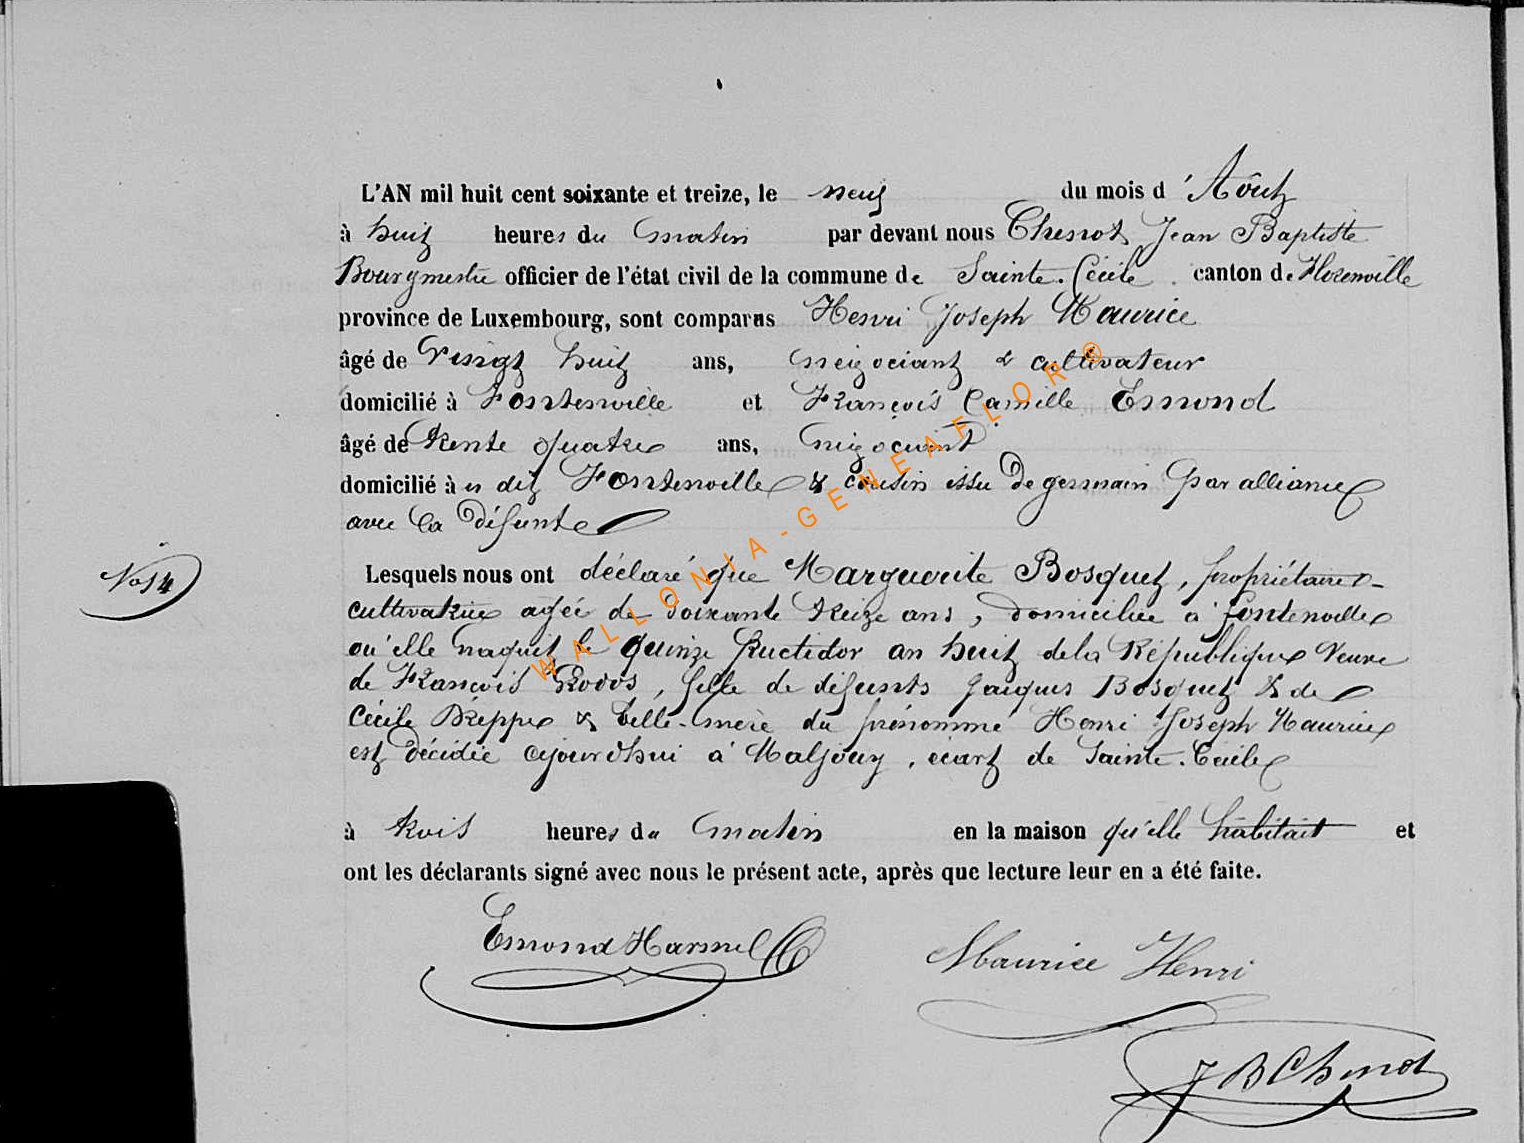 L'AN mil huit cent soixante et treize, le neuf du mois d'Août
à huit heures du matin par devant nous Chenot Jean Baptiste
Bourgmestre officier de l'état civil de la commune de Sainte-Cécile canton de Florenville
province de Luxembourg, sont comparus Henri Joseph Maurice
âgé de Vingt huit ans, négociant & cultivateur
domicilié à Fontenoille et François Camille Emond
âgé de trente quatre ans, négociant
domicilié à u dit Fontenoille & cousin issu de germain par alliance
avec la défunte
No 14
Lesquels nous ont déclaré que Marguerite Bosquet, propriétaire
cultivatrice agée de soixante treize ans, domiciliée à fontenoille
où elle naquit le quinze fructidor an huit de la République Veuve
de François, fille de défunts Jacques Bosquet & de
Cécile & belle-mère du prénommé Henri Joseph Maurice
est décédée cejourd'hui à, écart de Sainte-Cécile
à trois heures du matin en la maison qu'elle habitait et
ont les déclarants signé avec nous le présent acte, après que lecture leur en a été faite.
Emond Harmel
Maurice Henri
J B Chenot
WALLONIA-GENEAFLOR®